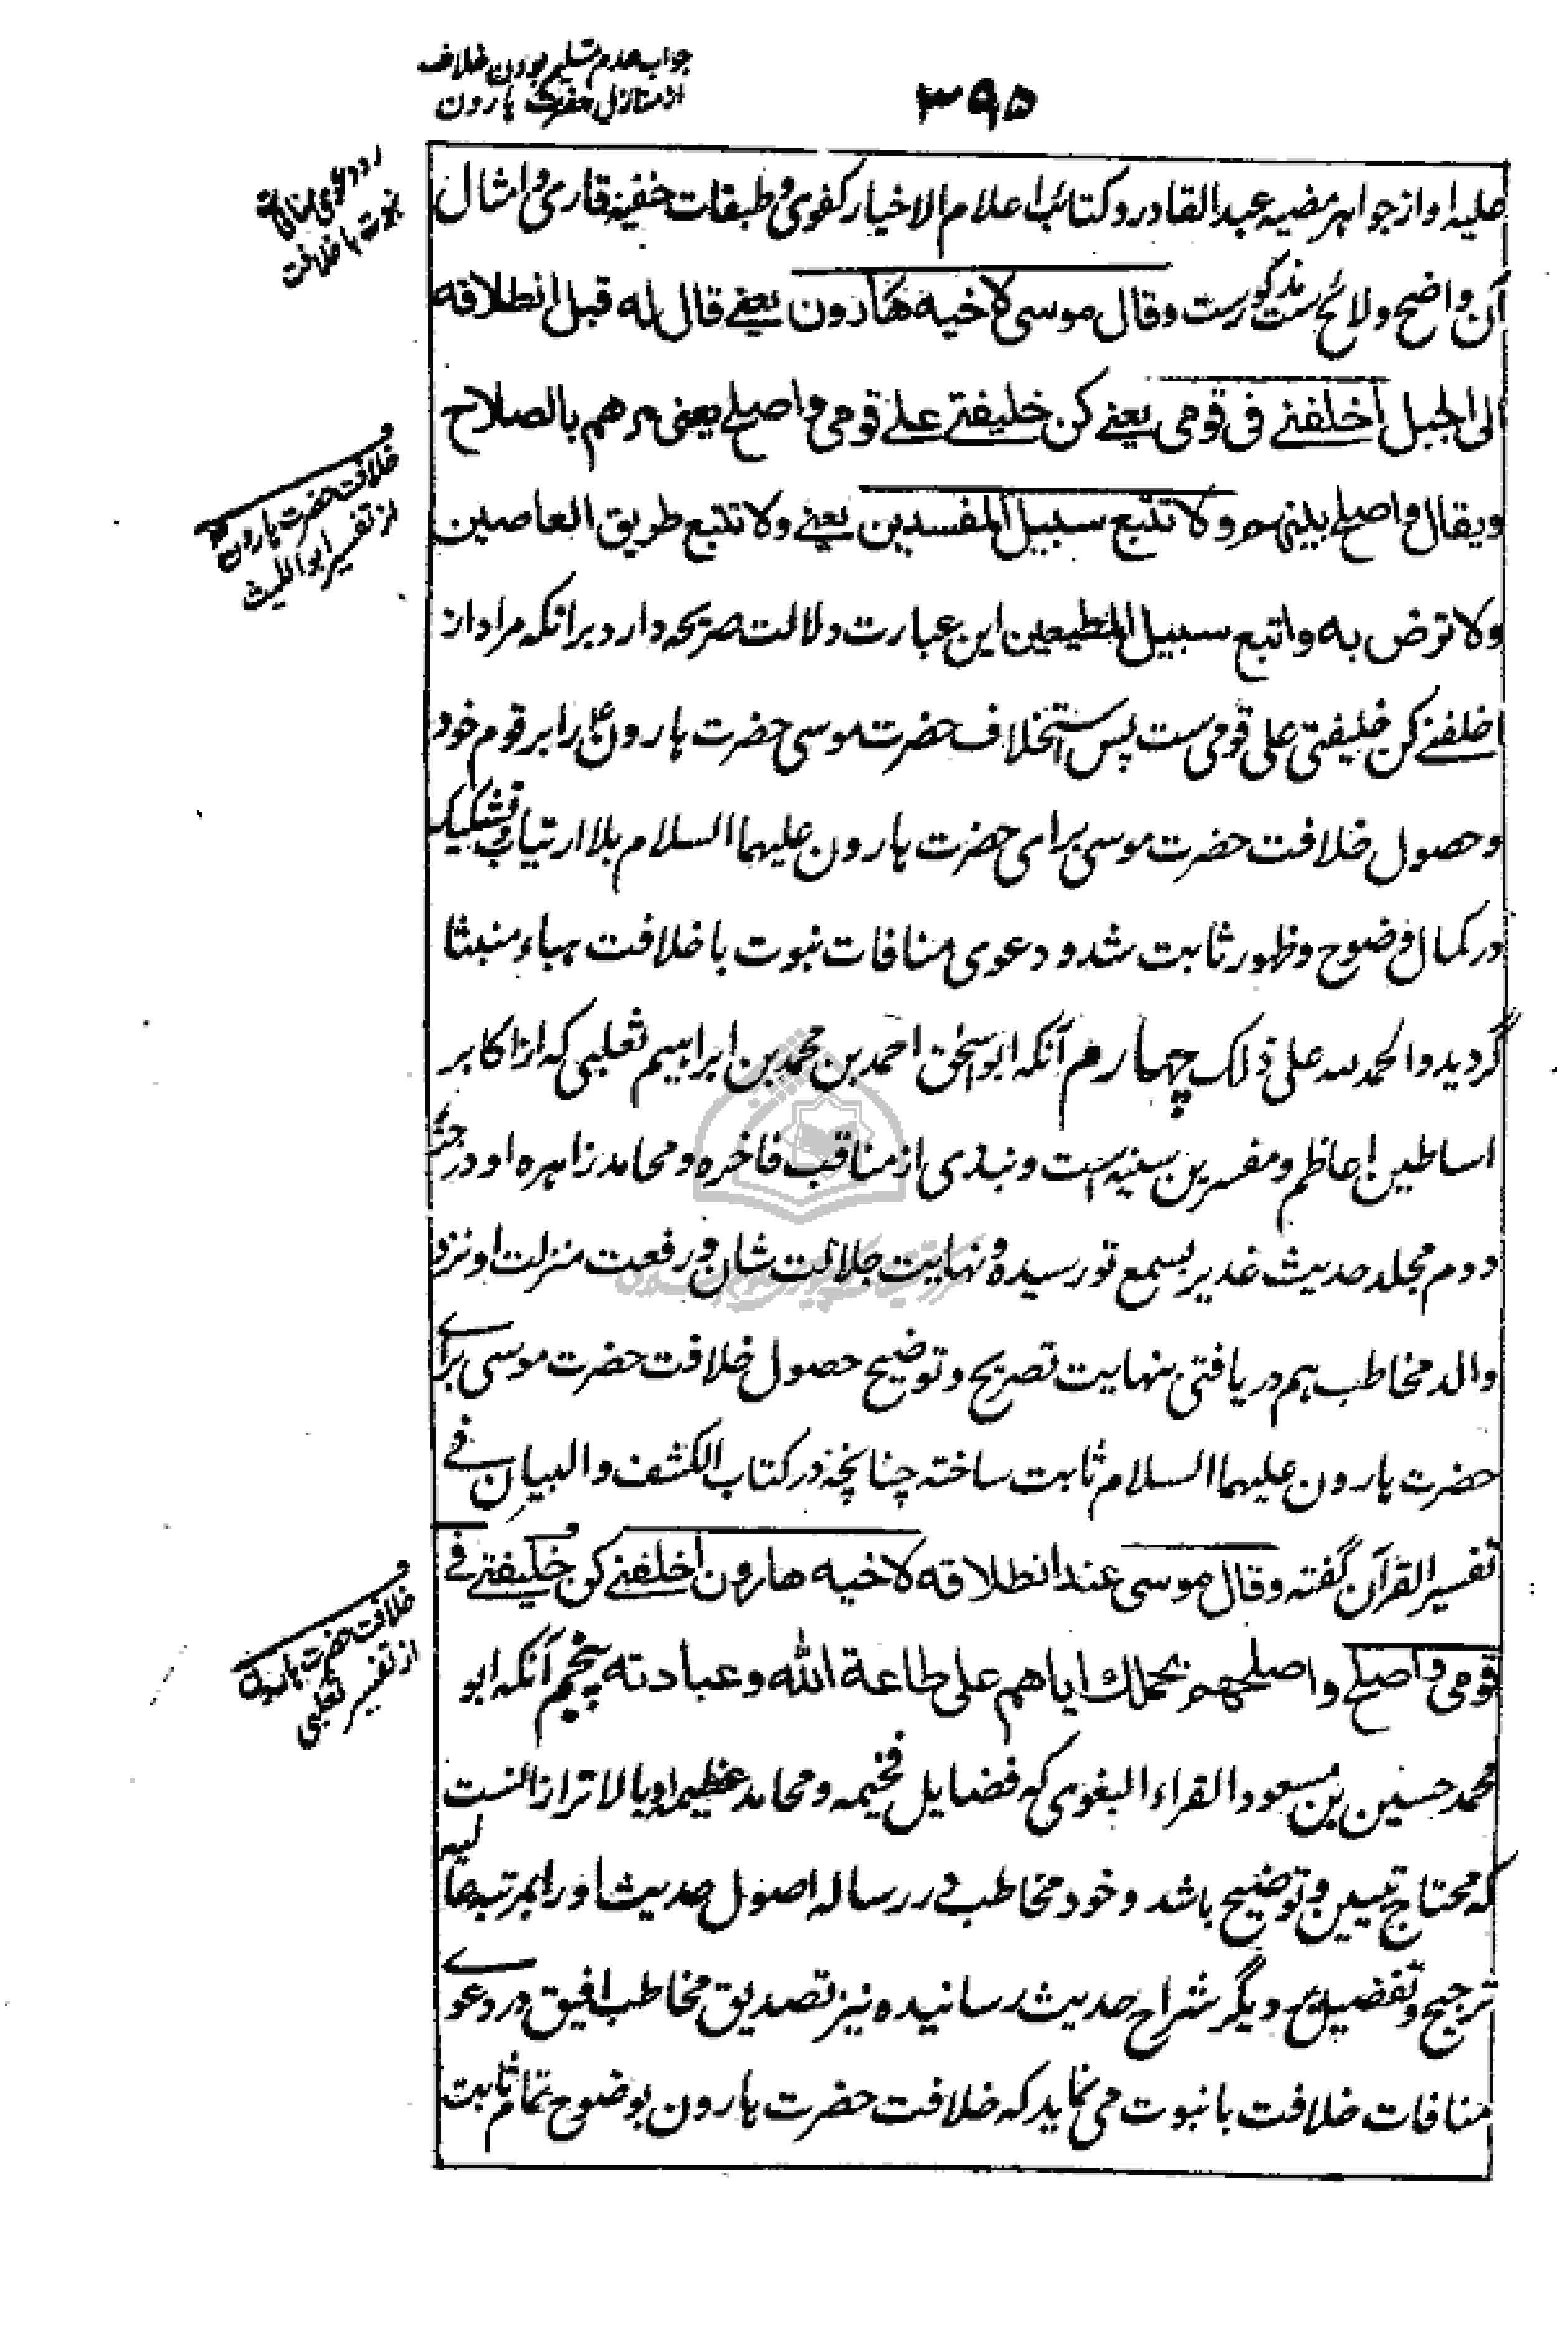 جواب عدم تسلیم بودن خلاف
۳۹۵
از منازل حضرت هارون
رد دعوی منافات
نبوت با خلافت
علیه او از جواهر مضیه عبد القادر و کتائب اعلام الاخیار کفوی و طبقات حنفیه قاری و امثال
آن واضح و لائح ست مذکورست وقال موسی لاخیه هارون یعنے قال له قبل انطلاقه
الی الجبل اخلفنے فی قومی یعنے کن خلیفتے علے قومی واصلح یعنی مرهم بالصلاح
ویقال واصلح بینهم ولا تتبع سبیل المفسدین یعنے ولا تتبع طریق العاصین
خلافت حضرت هارون
از تفسیر ابو اللیث
ولا ترض به واتبع سبیل المطیعین این عبارت دلالت صریحه دارد برانکه مراد از
اخلفنے کن خلیفتی علی قومی ست پس استخلاف حضرت موسی حضرت هارون را بر قوم خود
و حصول خلافت حضرت موسی برای حضرت هارون علیهما السلام بلا ارتیاب و تشکیک
در کمال وضوح و ظهور ثابت شد و دعوی منافات نبوت با خلافت هباء منبثا
گردید و الحمد لله علی ذلک چهارم آنکه ابو اسحٰق احمد بن محمد بن ابراهیم ثعلبی که از اکابر
اساطین اعاظم و مفسرین سنیه است و نبذی از مناقب فاخره و محامد زاهره او در حصّهٔ
دوم مجلد حدیث غدیر بسمع تو رسیده و نهایت جلالت شان و رفعت منزلت او نزد
والد مخاطب هم دریافتی بنهایت تصریح و توضیح حصول خلافت حضرت موسی براے
حضرت هارون علیهما السلام ثابت ساخته چنانچه در کتاب الکشف والبیان فے
تفسیر القرآن گفته وقال موسی عند انطلاقه لاخیه هارون اخلفنے کن خلیفتے فے
خلافت حضرت هارون
از تفسیر ثعلبی
قومی واصلح واصلحهم بحملك ایاهم علی طاعة الله وعبادته پنجم آنکه ابو
محمد حسین بن مسعود الفراء البغوی که فضایل فخیمه و محامد عظیمه او بالاتر ازانست
که محتاج تبیین و توضیح باشد و خود مخاطب در رساله اصول حدیث او را بمرتبه عالیه
ترجیح و تفضیل بر دیگر شراح حدیث رسانیده نیز تصدیق مخاطب افیق در دعوے
منافات خلافت با نبوت می نماید که خلافت حضرت هارون بوضوح تمام ثابت